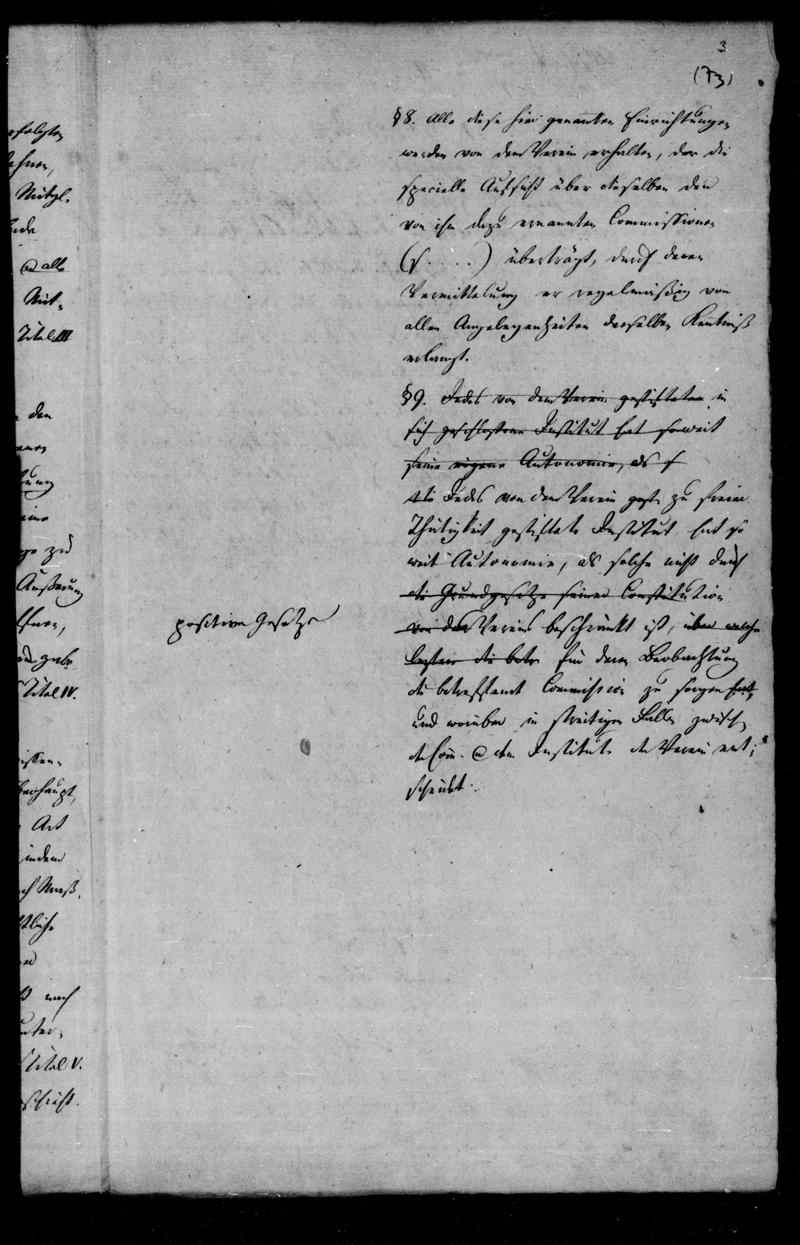 3
(73)
§ 8. Alle diese hier genannten Einrichtungen
werden von dem Verein erhalten, der die
specielle Aufsicht über dieselben den
von ihm dazu ernannten Commissionen
(§. . . .) überträgt, durch deren
Vermittelung er regelmäßig von
allen Angelegenheiten derselben Kentniß
erlangt.
§ 9. Jedes von dem Verein gestiftete in
sich geschlossene Institut hat soweit
seine eigene Autonomie, als s
Jedes von dem Verein zu freier
Thätigkeit gestiftete Institut hat so
weit Autonomie, als solche nicht durch
die Grundgesetze seiner Constitution
positive Gesetze
von des Vereins beschränkt ist, über welche
letztere die betr für deren Beobachtung
die betreffende Commission zu sorgen hat,
und worüber in streitigen Fällen zwisch
der Com. u dem Institute der Verein ent,
scheidet.
erfolgten
Mitgl.
u alle
Mit-
Titel III
den
zu
Äußerung
Titel IV.
überhaupt,
Art
indem
nach
unter,
Titel V.